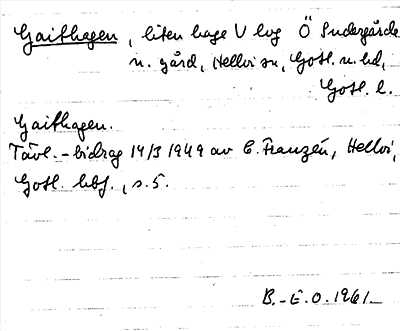 Gaithagen, liten hage V lvg Ö Sudergårde
n. gård, Hellvi sn, Gotl. n. hd,
Gotl. l.
Gaithagen.
Tävl.-bidrag 14/3 1949 av C. Franzén, Hellvi,
Gotl. hbf., s. 5.
B.-E.O. 1961